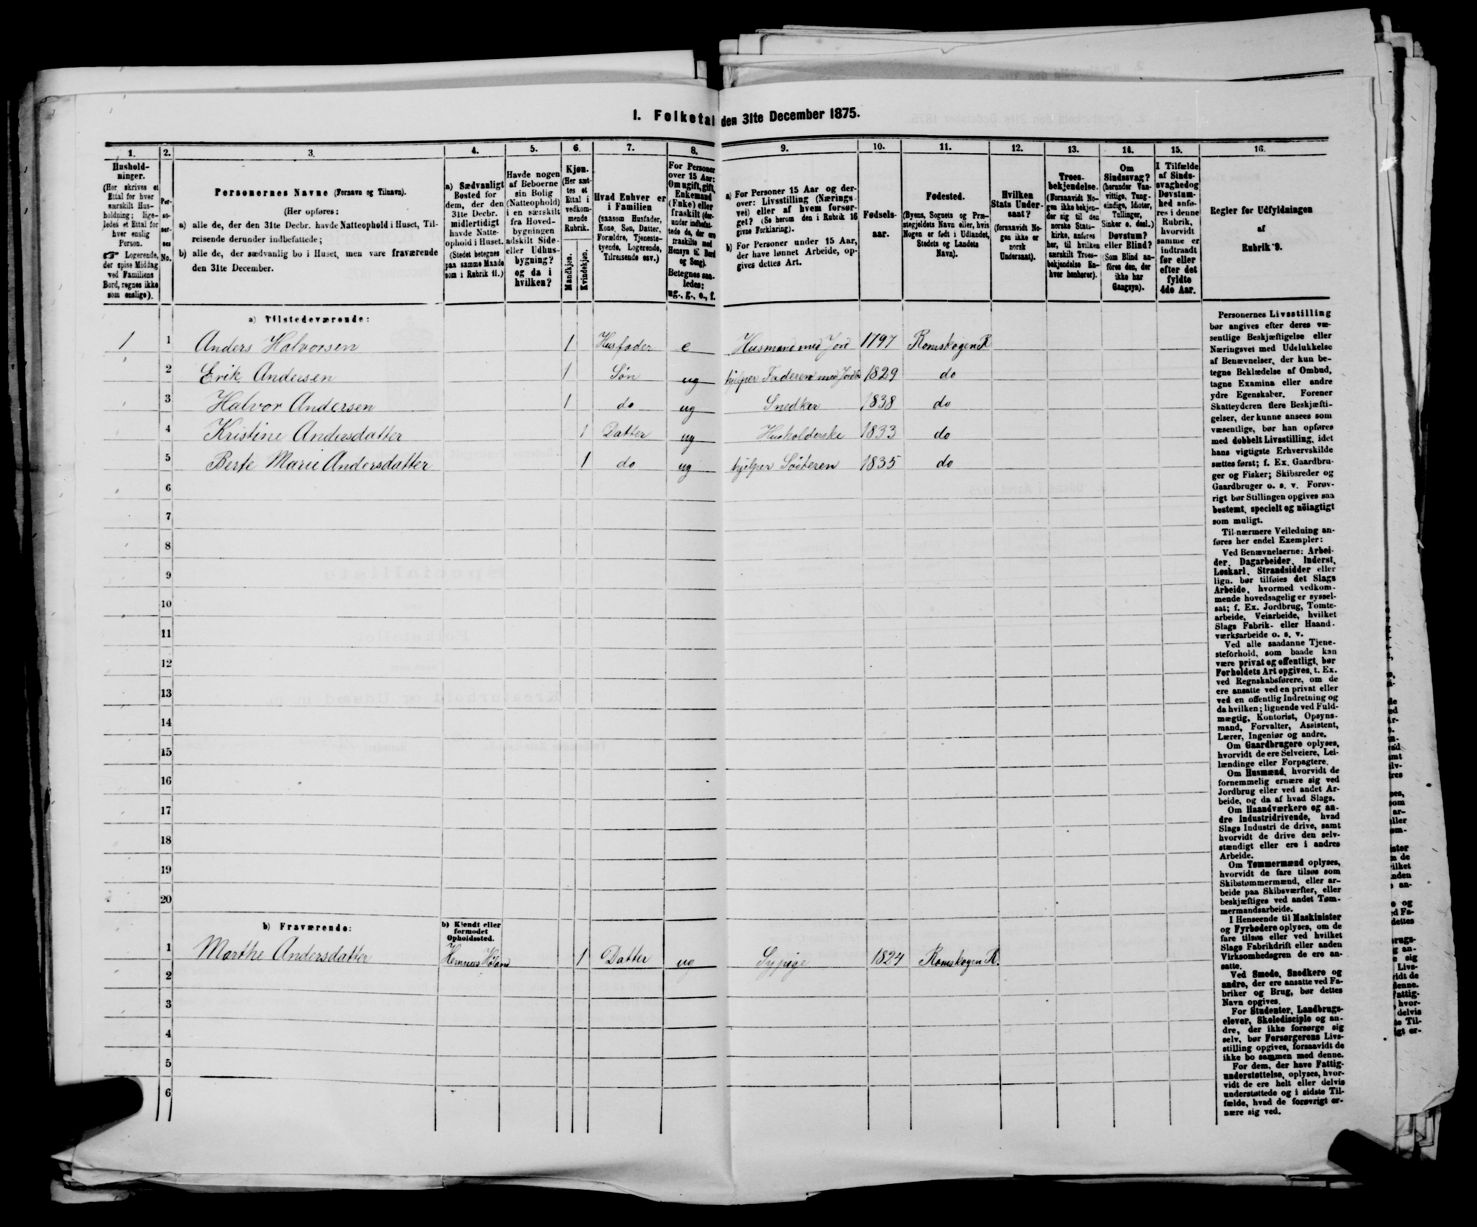 I. Folketal den 31te December 1875.
1. 2. 3. 4. 5. 6. 7. 8. 9. 10. 11. 12. 13. 14. 15. 16.
Hushold-
ninger.
(Her skrives et
Ettal for hver
særskilt Hus-
holdning; lige-
ledes et Ettal for
hver enslig
Person.
☞ Logerende,
der spise Middag
ved Familiens
Bord, regnes ikke
som enslige).
Per-
so-
ner-
nes
No.
Personernes Navne (Fornavn og Tilnavn).
(Her opføres:
a) alle de, der den 31te Decbr. havde Natteophold i Huset, Til-
reisende derunder indbefattede;
b) alle de, der sædvanlig bo i Huset, men vare fraværende
den 31te December.
a) Sædvanligt
Bosted for
dem, der den
31te Decbr.
midlertidigt
havde Natte-
ophold i Huset.
(Stedet betegnes
paa samme Maade
som i Rubrik 11.)
Havde nogen
af Beboerne
sin Bolig
(Natteophold)
i en særskilt
fra Hoved-
bygningen
adskilt Side-
eller Udhus-
bygning?
og da i
hvilken?
Kjøn.
(Her sæt-
tes et
Ettal i
vedkom-
mende
Rubrik.
Mandkjøn.
Kvindekjøn.
Hvad Enhver er
i Familien
(saasom Husfader,
Kone, Søn, Datter,
Forældre, Tjeneste-
tyende, Logerende,
Tilreisende osv.)
For Personer
over 15 Aar:
Om ugift, gift,
Enkemand
(Enke) eller
fraskilt (der-
under indbefat-
tede de, der er
fraskilte med
Hensyn til Bord
og Seng).
Betegnes saa-
ledes:
ug., g., e., f.
a) For Personer 15 Aar og der-
over: Livsstilling (Nærings-
vei) eller af hvem forsør-
get? (Se herom den i Rubrik 16
givne Forklaring).
b) For Personer under 15 Aar,
der have lønnet Arbeide, op-
gives dettes Art.
Fødsels-
aar.
Fødested.
(Byens, Sognets og Præ-
stegjeldets Navn eller, hvis
Nogen er født i Udlandet,
Stedets og Landets
Navn).
Hvilken
Stats Under-
saat?
(forsaavidt No-
gen ikke er
norsk
Undersaat).
Troes-
bekjendelse.
(Forsaavidt No-
gen ikke bekjen-
der sig til den
norske Stats-
kirke, anføres
her, til hvilken
særskilt Troes-
bekjendelse En-
hver henhører).
Om
Sindssvag?
(herunder Van-
vittige, Tung-
sindige, Idioter,
Tullinger,
Sinker o. desl.)
Døvstum?
eller Blind?
(Som Blind an-
føres den, der
ikke har
Gangsyn).
I Tilfælde
af Sinds-
svaghed og
Døvstum-
hed anfø-
res i denne
Rubrik,
hvorvidt
samme er
indtraadt
før eller
efter det
fyldte
4de Aar.
Regler for Udfyldningen
af
Rubrik 9.
a) Tilstedeværende:
1 1 Anders Halvorsen 1 Husfader e Husmand med Jord 1797 Romskogen R
2 Erik Andersen 1 Søn ug hjelper Faderen med Jordbr 1829 do
3 Halvor Andersen 1 do ug Snedker 1838 do
4 Kristine Andersdatter 1 Datter ug Husholderske 1833 do
5 Berte Marie Andersdatter 1 do ug hjelper Søsteren 1835 do
6
7
8
9
10
11
12
13
14
15
16
17
18
19
20
b) Fraværende:
b) Kjendt eller
formodet
Opholdssted.
1 Marthe Andersdatter Hemnæs Høland 1 Datter ug Sypige 1824 Romskogen R.
2
3
4
5
6
Personernes Livsstilling
bør angives efter deres væ-
sentlige Beskjæftigelse eller
Næringsvei med Udelukkelse
af Benævnelser, der kun be-
tegne Beklædelse af Ombud,
tagne Examina eller andre
ydre Egenskaber. Forener
Skatteyderen flere Beskjæfti-
gelser, der kunne ansees som
væsentlige, bør han opføres
med dobbelt Livsstilling, idet
hans vigtigste Erhvervskilde
sættes først; f. Ex. Gaardbru-
ger og Fisker; Skibsreder og
Gaardbruger o. s. v. Forøv-
rigt bør Stillingen opgives saa
bestemt, specielt og nöiagtigt
som muligt.
Til nærmere Veiledning an-
føres her endel Exempler:
Ved Benævnelserne: Arbei-
der, Dagarbeider, Inderst,
Løskarl, Strandsidder eller
lign. bør tilføies det Slags
Arbeide, hvormed vedkom-
mende hovedsagelig er syssel-
sat; f. Ex. Jordbrug, Tomte-
arbeide, Veiarbeide, hvilket
Slags Fabrik- eller Haand-
værksarbeide o. s. v.
Ved alle saadanne Tjene-
steforhold, som baade kan
være privat og offentligt, bør
Forholdets Art opgives, t. Ex.
ved Regnskabsførere, om de
ere ansatte ved en privat eller
ved en offentlig Indretning og
da hvilken; lignende ved Fuld-
mægtig, Kontorist, Opsyns-
mand, Forvalter, Assistent,
Lærer, Ingeniør og andre.
Om Gaardbrugere oplyses,
hvorvidt de ere Selveiere, Lei-
lændinge eller Forpagtere.
Om Husmænd, hvorvidt de
fornemmelig ernære sig ved
Jordbrug eller ved andet Ar-
beide, og da af hvad Slags.
Om Haandværkere og an-
dre Industridrivende, hvad
Slags Industri de drive, samt
hvorvidt de drive den selv-
stændigt eller ere i andres
Arbeide.
Om Tømmermænd oplyses,
hvorvidt de fare tilsøs som
Skibstømmermænd, eller ar-
beide paa Skibsværfter, eller
beskjæftiges ved andet Tøm-
mermandsarbeide.
I Henseende til Maskinister
og Fyrbødere oplyses, om de
fare tilsøs eller ved hvilket
Slags Fabrikdrift eller anden
Virksomhedsgren de ere an-
satte.
Ved Smede, Snedkere og
andre, der ere ansatte ved Fa-
briker og Brug, bør dettes
Navn opgives.
For Studenter, Landbrugs-
elever, Skoledisciple og an-
dre, der ikke forsørge sig
selv, bør Forsørgerens Livs-
stilling opgives, forsaavidt de
ikke bo sammen med denne.
For dem, der have Fattig-
understøttelse, oplyses, hvor-
vidt de ere helt eller delvis
understøttede og i sidste Til-
fælde, hvad de forøvrigt er-
nære sig ved.